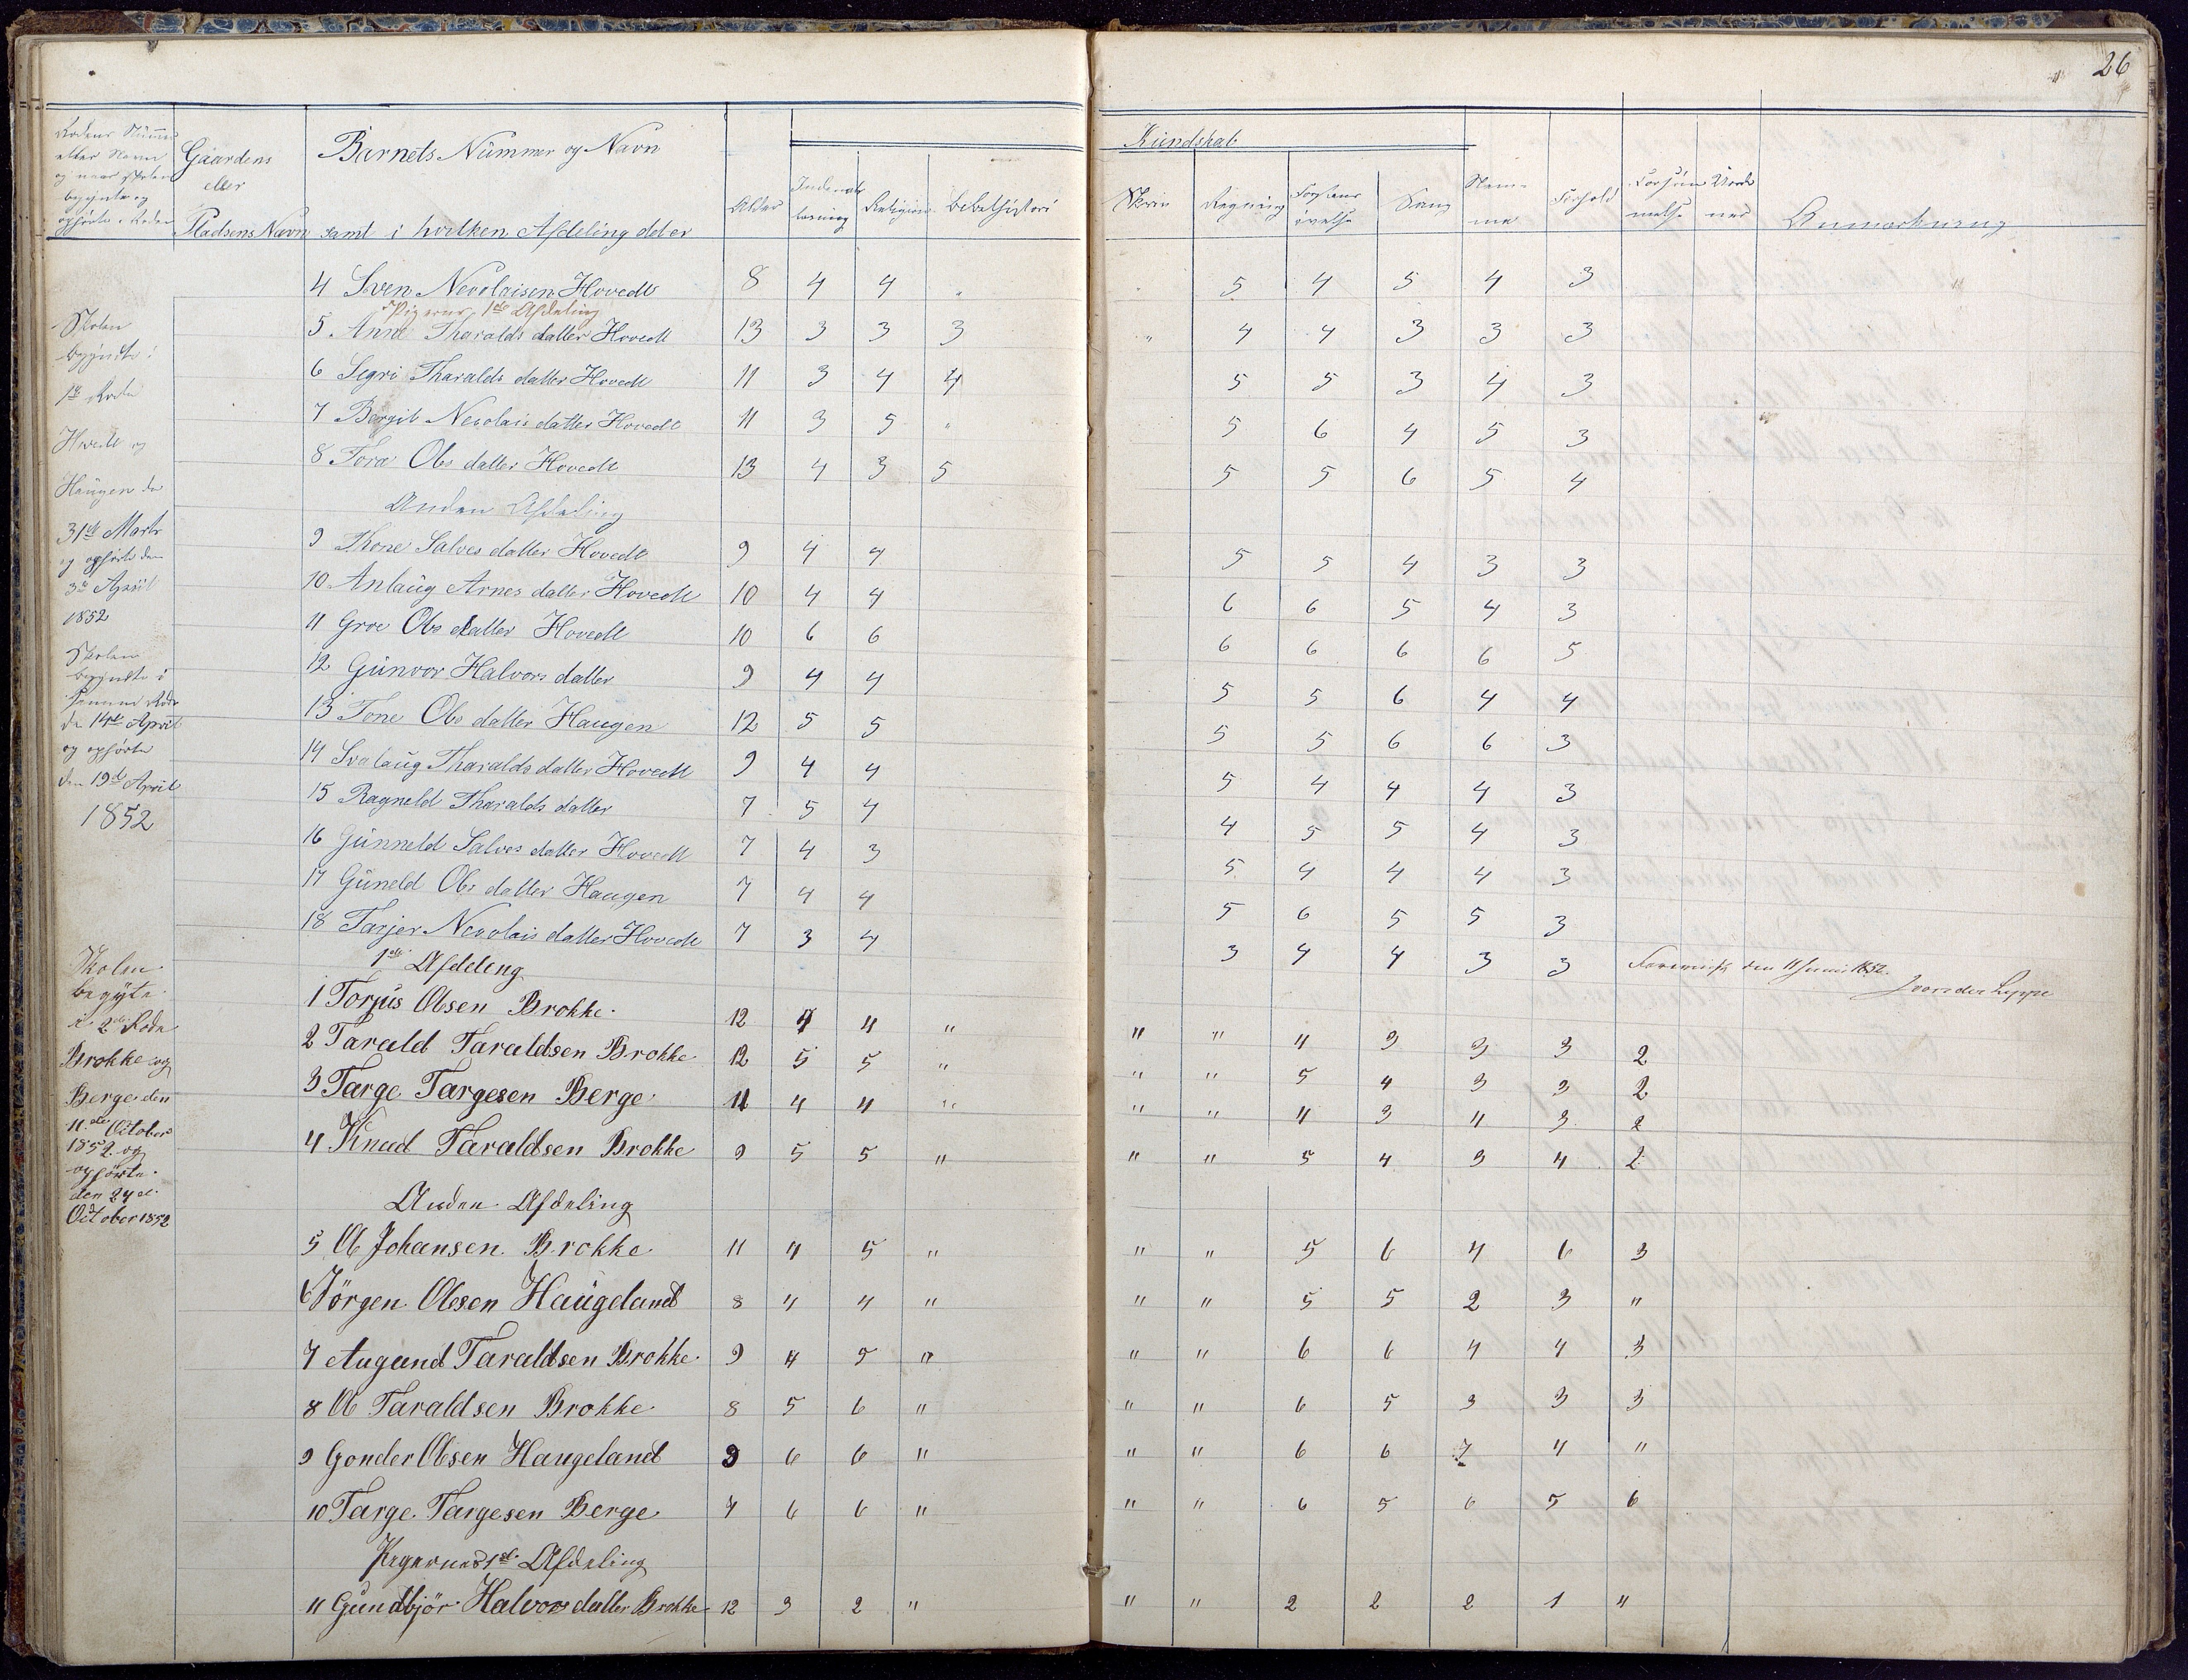 26
Rodens Nummer
eller Navn
og naar Skolen
begyndte og
ophørte i Roden
Gaardens
eller
Pladsens Navn
Barnets Nummer og Navn
samt i hvilken Afdeling det er
Alder
Indenads
læsning
Religion
Bibelhistori
Kundskab
Skriv
Regning
Forstands
øvelse
Sang
Nem-
me
Forhold
Forsøm
melse
Anmærkning
4 Sven Nevolaisen Hovedt 8 4 4 " " 5 4 5 4 3
Pigerne 1ste Afdeling
5 Anne Tharalds datter Hovedt 13 3 3 3 " 4 4 3 3 3
6 Segri Tharalds datter Hovedt 11 3 4 4 5 5 3 4 3
7 Bergit Nevolais datter Hovedt 11 3 5 " 5 6 4 5 3
8 Tora Ols datter Hovedt 13 4 3 5 5 5 6 5 4
Anden Afdeling
9 Thone Salves datter Hovedt 9 4 4 5 5 4 3 3
10 Anlaug Arnes datter Hovedt 10 4 4 6 6 5 4 3
11 Groe Ols datter Hovedt 10 6 6 6 6 6 6 5
12 Gunvor Halvors datter 9 4 4 5 5 6 4 4
13 Tone Ols datter Haugen 12 5 5 5 5 6 6 3
14 Svalaug Tharalds datter Hovedt 9 4 4 5 4 4 4 3
15 Ragneld Tharalds datter 7 5 4 4 5 5 4 3
16 Gunneld Salves datter Hovedt 7 4 3 5 4 4 4 3
17 Guneld Ols datter Haugen 7 4 4 5 6 5 5 3
18 Tarjer Nevolais datter Hovedt 7 3 4 3 4 4 3 3 Forevist den 11 Juni 1852.
J von der Lippe
Skolen
begyndte i
1ste Rode
Hovedt og
Haugen den
31te Marts
og ophørte den
3de April
1852
Skolen
begyndte i
samme Rode
den 14de April
og ophørte
den 19de April
1852
1ste Afdeleng
1 Torjus Olsen Brokke 12 4 4 " " " 4 3 3 3 2
2 Tarald Taraldsen Brokke 12 5 5 " " " 5 4 3 3 2
3 Targe Targesen Berge 11 4 4 " " " 4 3 4 3 2
4 Knud Taraldsen Brokke 9 5 5 " " " 5 4 3 4 2
Anden Afdeling
5 Ol Johansen Brokke 11 4 5 " " " 5 6 4 6 3
6 Jörgen Olesen Haugeland 8 4 4 " " " 5 5 2 3 "
7 Augund Taraldsen Brokke 9 4 5 " " " 6 6 4 4 3
8 Ol Taraldsen Brokke 8 5 6 " " " 6 5 3 3 3
9 Gonder Olsen Haugeland 9 6 6 " " " 6 6 7 4 "
10 Targe Targesen Berge 7 6 6 " " " 6 5 6 5 6
Pigernes 1ste Afdeling
11 Gundbjör Halvors datter Brokke 12 3 2 " " " 2 2 2 1 "
Skolen
begÿte
i 2den Rode
Brokke og
Berge den
11te October
1852 og
ophørte
den 24de
October 1852